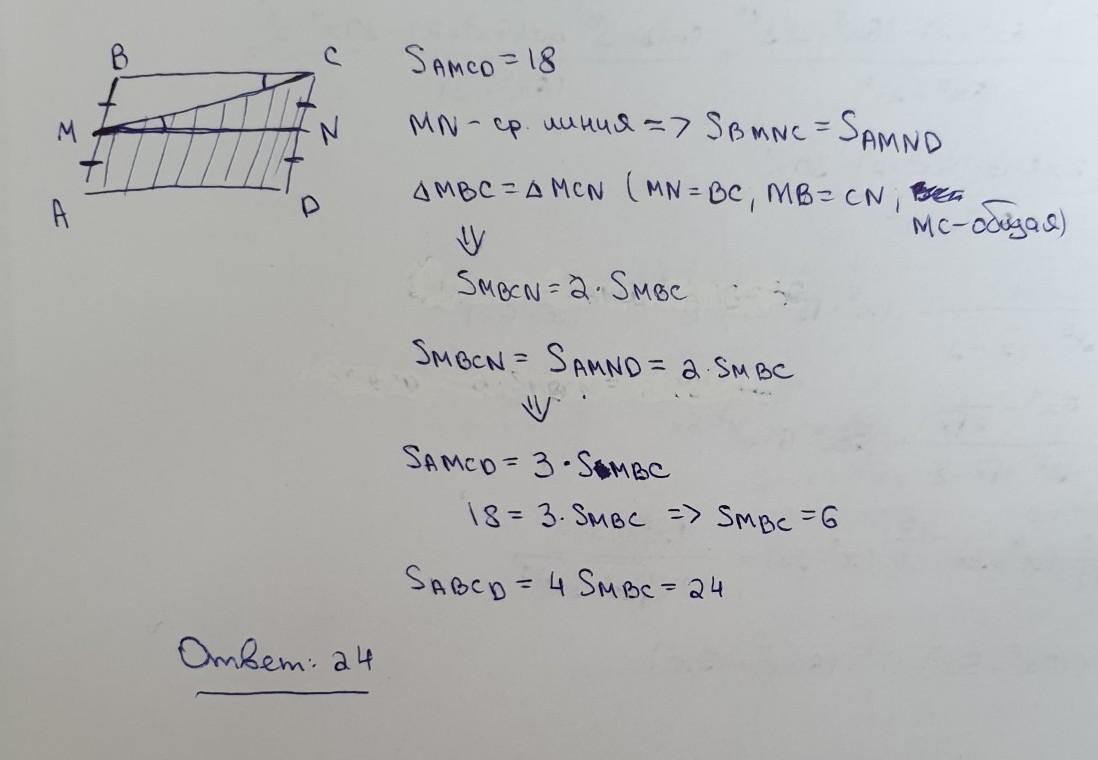 B C
M N
A D
SAMCD = 18
MN - ср. линия => SBMNC = SAMND
ΔMBC = ΔMCN (MN = BC, MB = CN,
MC - общая)
⇓
SMBCN = 2 · SMBC
SMBCN = SAMND = 2 · SMBC
⇓
SAMCD = 3 · SMBC
18 = 3 · SMBC => SMBC = 6
SABCD = 4 SMBC = 24
Ответ: 24